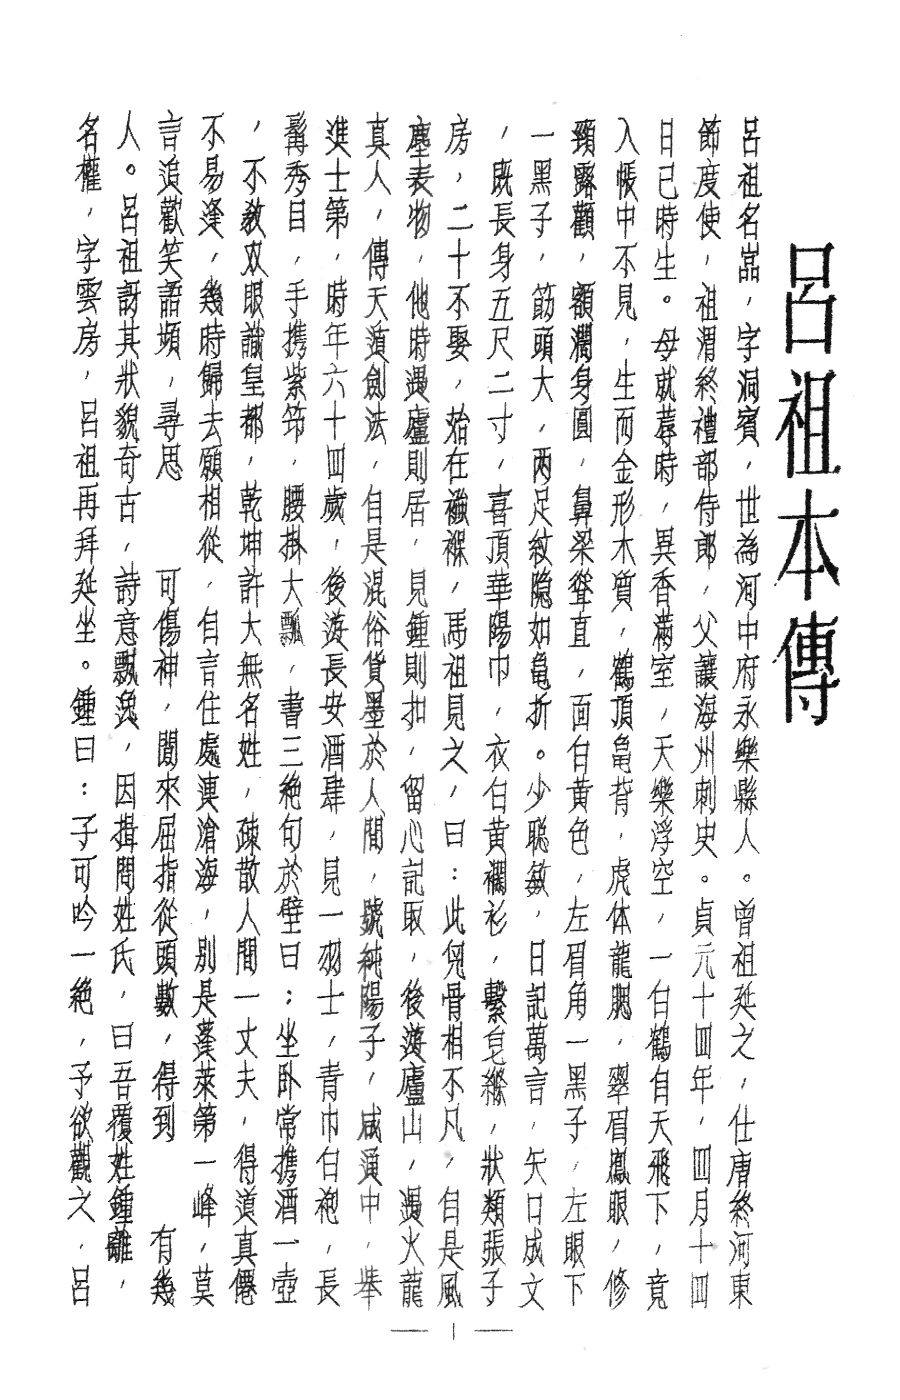 呂祖本傳
呂祖名嵓，字洞賓，世為河中府永樂縣人。曾祖延之，仕唐終河東
節度使，祖渭終禮部侍郎，父讓海州刺史。貞元十四年，四月十四
日已時生。母就蓐時，異香滿室，天樂浮空，一白鶴自天飛下，竟
入帳中不見，生而金形木質，鶴頂龜背，虎体龍腮，翠眉鳳眼，修
頸露顴，額濶身圓，鼻梁聳直，面白黃色，左眉角一黑子，左眼下
一黑子，筋頭大，兩足紋隐如亀折。少聡敏，日記萬言，矢口成文
，既長身五尺二寸，喜頂華陽巾，衣白黃襴衫，繫皂縧，狀類張子
房，二十不娶，始在襁褓，馬祖見之，曰：此兒骨相不凡，自是風
塵表物，他時遇廬則居，見鍾則扣，留心記取，後遊廬山，遇火龍
真人，傳天遁劍法，自是混俗貨墨於人間，號純陽子，咸通中，舉
進士第，時年六十四歲，後游長安酒肆，見一羽士，青巾白袍，長
髯秀目，手携紫笻，腰掛大瓢，書三絶句於壁曰：坐卧常携酒一壺
，不教双眼識皇都，乾坤許大無名姓，疎散人間一丈夫，得道真僊
不易逢，幾時歸去願相從，自言住處連滄海，別是蓬萊第一峰，莫
言追歡笑語頻，尋思　可傷神，閒來屈指從頭數，得到　有幾
人。呂祖訝其狀貌奇古，詩意飄逸，因揖問姓氏，曰吾覆姓鍾離，
名權，字雲房，呂祖再拜延坐。鍾曰：子可吟一絶，予欲觀之，呂
— 1 —